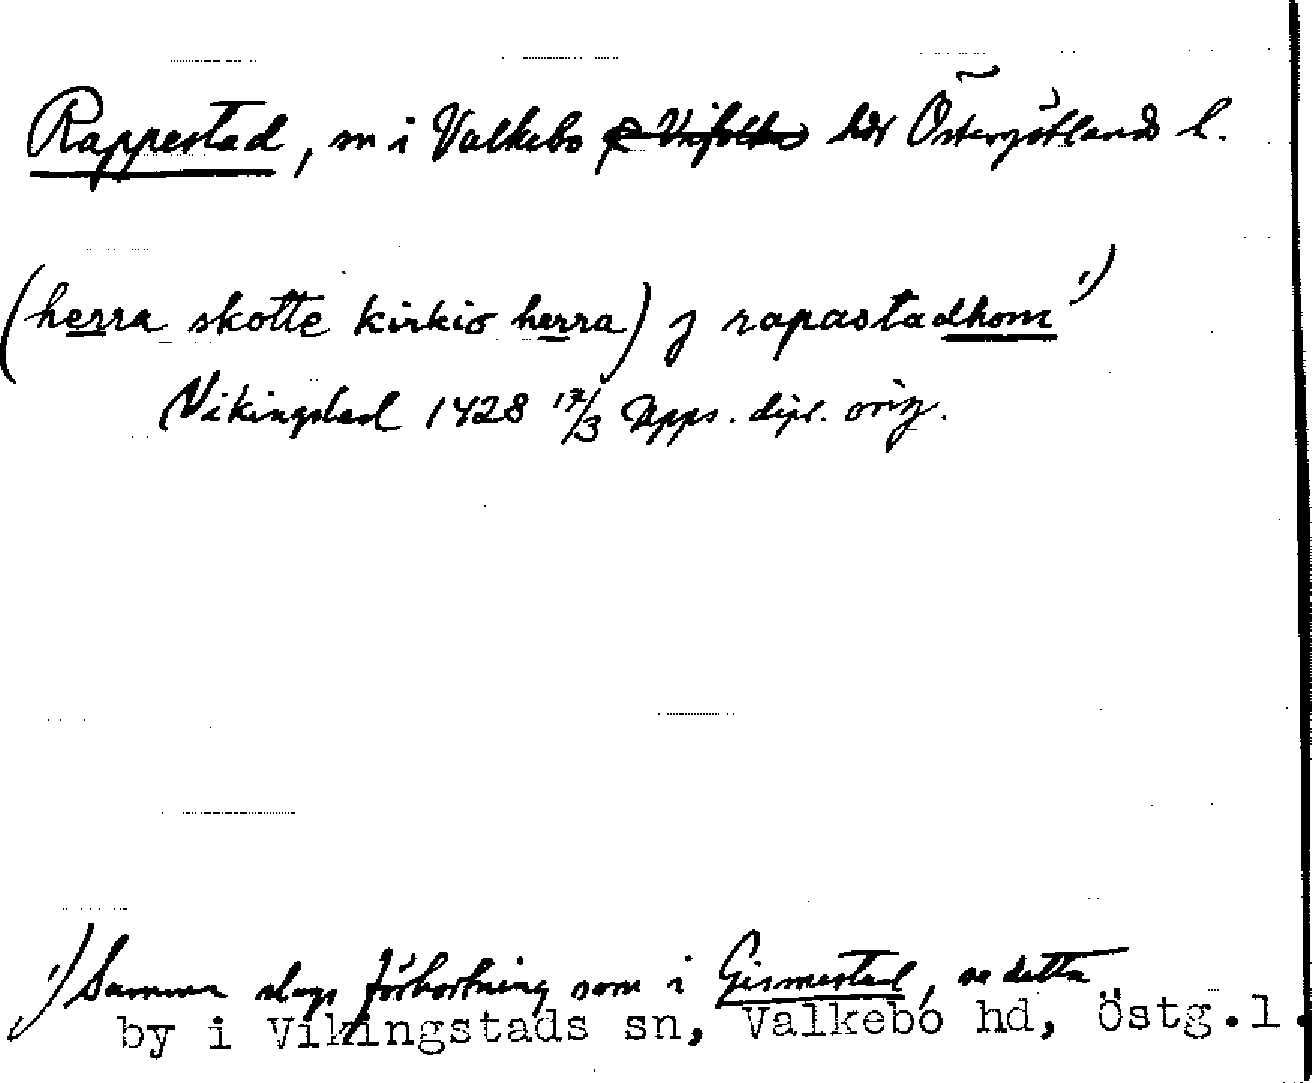 Rappestad, sn i Valkebo o Vifolka hdr Östergötlands l.
(herra skotte kirkio herra) j rapastadhom 1)
Vikingstad 1428 17/3 Upps. dipl. orig.
1) Samma slags förkortning som i Gismestad, se detta
by i Vikingstads sn, Valkebo hd, Östg.l.